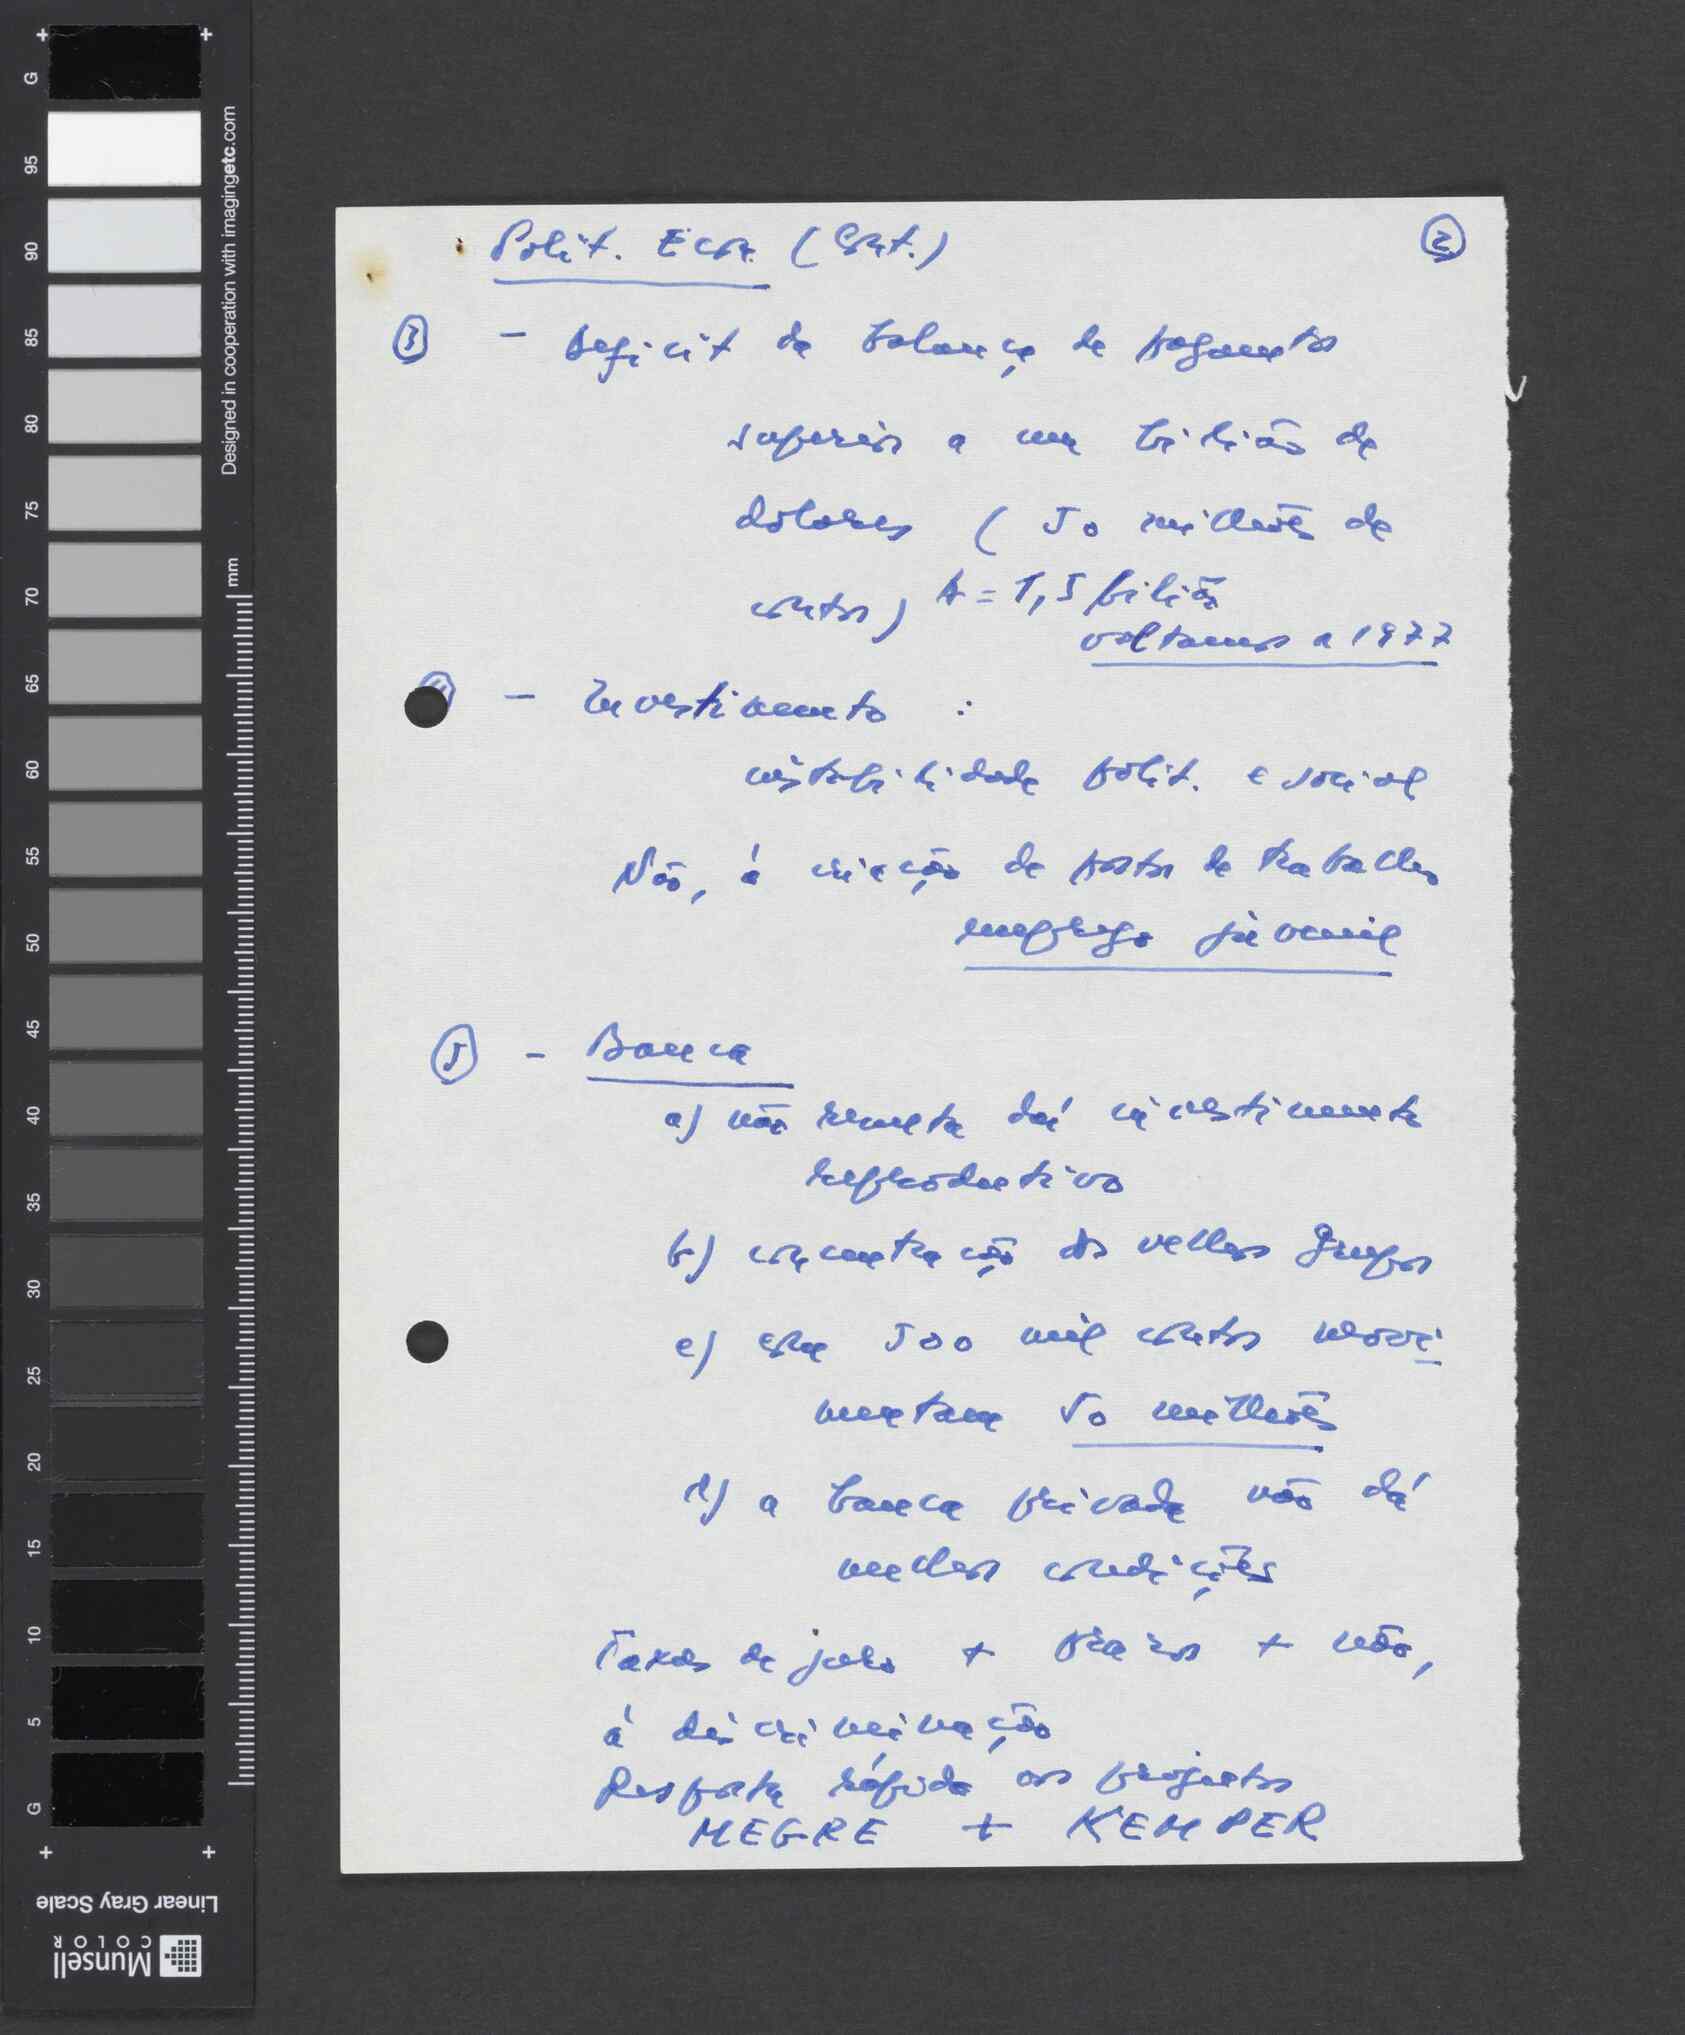 Polit. Econ. (Cont.)
2
3 - deficit da balança de pagamentos
superior a um bilião de
dólares ( 50 milhões de
contos) = 1,5 bilião
voltamos a 1977
- Investimento :
instabilidade polit. e social
Não, à criação de postos de trabalho
emprego juvenil
5 - Banca
a) não aumenta daí investimento
reproductivo
b) concentração dos velhos Grupos
c) com 500 mil contos movi-
mentam 50 milhões
d) a banca privada não dá
melhores condições
Taxas de juro + prazos + não,
à discriminação
Resposta rápida aos projectos
MEGRE + KEMPER
G
95
90
85
80
75
70
65
60
55
50
45
40
35
30
25
20
15
10
5
G
Designed in cooperation with imagingetc.com
mm
Linear Gray Scale
Munsell
COLOR